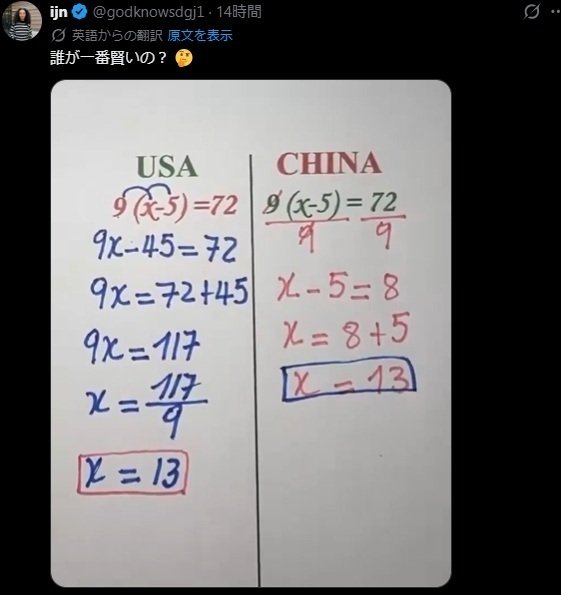 ijn @godknowsdgj1・14時間
英語からの翻訳 原文を表示
誰が一番賢いの？🤔
USA
9(x-5)=72
9x-45=72
9x=72+45
9x=117
x=117/9
x=13
CHINA
9(x-5)/9=72/9
x-5=8
x=8+5
x=13